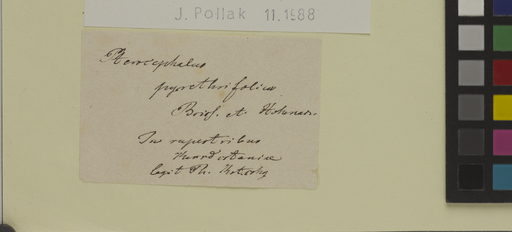 J. Pollak 11.1988
Pterocephalus
pyrethrifolius
Boiss. et Hohenack.
In rupestribus
Kurdistaniae
legit Th. Kotschy